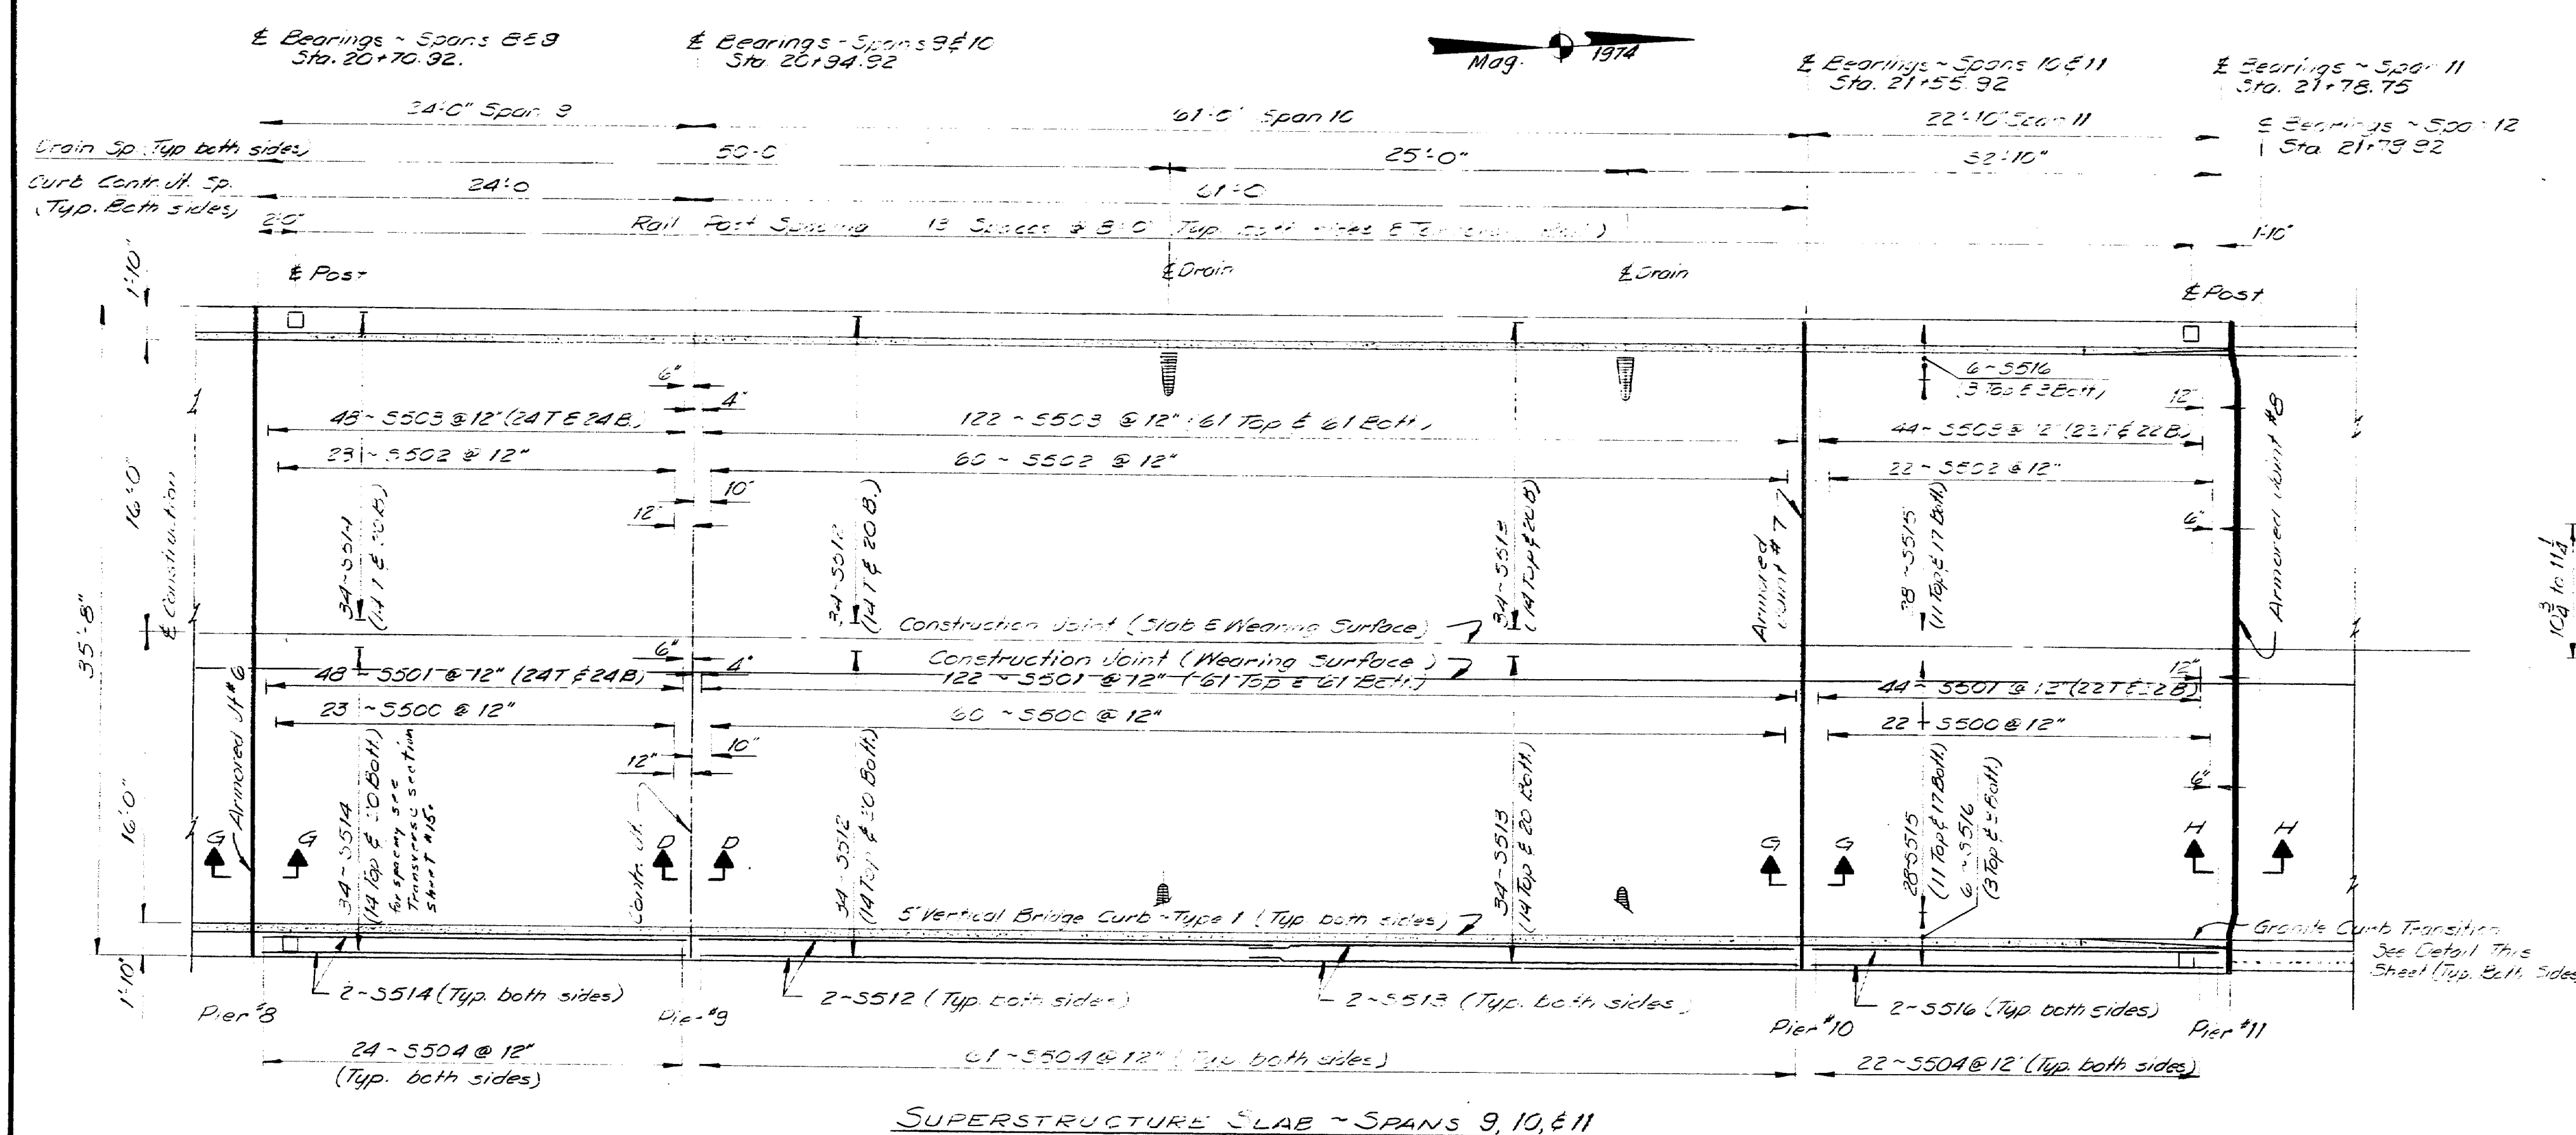 ℄ Bearings ~ Spans 8 & 9
Sta. 20+70.92.
℄ Bearings - Spans 9 & 10
Sta. 20+94.92
Mag. 1974
℄ Bearings ~ Spans 10 & 11
Sta. 21+55.92
℄ Bearings ~ Span 11
Sta. 21+78.75
℄ Bearings ~ Span 12
Sta. 21+79.92
24'-0" Span 9
61'-0" Span 10
22'-10" Span 11
Drain Sp. (Typ both sides)
50'-0
25'-0"
32'-10"
Curb Contr. Jt. Sp.
(Typ. Both sides)
24'-0
61'-0
2'-0"
Rail Post Spacing 13 Spaces @ 8'-0" Typ. both sides &
1'-10"
1'-10"
℄ Post
℄ Drain
℄ Drain
℄ Post
6"
4"
6 ~ S516
(3 Top & 3 Bott.)
12"
48 ~ S503 @ 12" (24T & 24B.)
122 ~ S503 @ 12" (61 Top & 61 Bott.)
44 ~ S503 @ 12" (22T & 22B.)
23 ~ S502 @ 12"
60 ~ S502 @ 12"
22 ~ S502 @ 12"
10"
12"
6"
16'-0"
℄ Construction
35'-8"
34 ~ S514
(14 T & 20 B.)
34 ~ S512
(14 T & 20 B.)
34 ~ S513
(14 Top & 20 B)
Armored
Joint #7
28 ~ S515
(11 Top & 17 Bott.)
Armored Joint #8
10 3/4 to 11 1/4
Construction Joint (Slab & Wearing Surface)
Construction Joint (Wearing Surface)
6"
4"
12"
48 ~ S501 @ 12" (24T & 24B)
122 ~ S501 @ 12" (61 Top & 61 Bott.)
44 ~ S501 @ 12" (22T & 22B)
23 ~ S500 @ 12"
60 ~ S500 @ 12"
22 ~ S500 @ 12"
10"
12"
6"
16'-0"
Armored Jt #6
34 ~ S514
(14 Top & 20 Bott.)
for spacing see
Transverse section
sheet #15.
Contr. Jt.
34 ~ S512
(14 Top & 20 Bott.)
34 ~ S513
(14 Top & 20 Bott.)
28 ~ S515
(11 Top & 17 Bott.)
6 ~ S516
(3 Top & 3 Bott.)
G G D D G G H H
5" Vertical Bridge Curb ~ Type 1 (Typ. both sides)
Granite Curb Transition
See Detail This
Sheet (Typ. Both Sides
1'-10"
2 ~ S514 (Typ. both sides)
2 ~ S512 (Typ. both sides)
2 ~ S513 (Typ. both sides)
2 ~ S516 (Typ. both sides)
Pier #8
Pier #9
Pier #10
Pier #11
24 ~ S504 @ 12"
(Typ. both sides)
61 ~ S504 @ 12" (Typ. both sides)
22 ~ S504 @ 12" (Typ. both sides)
SUPERSTRUCTURE SLAB ~ SPANS 9, 10, & 11